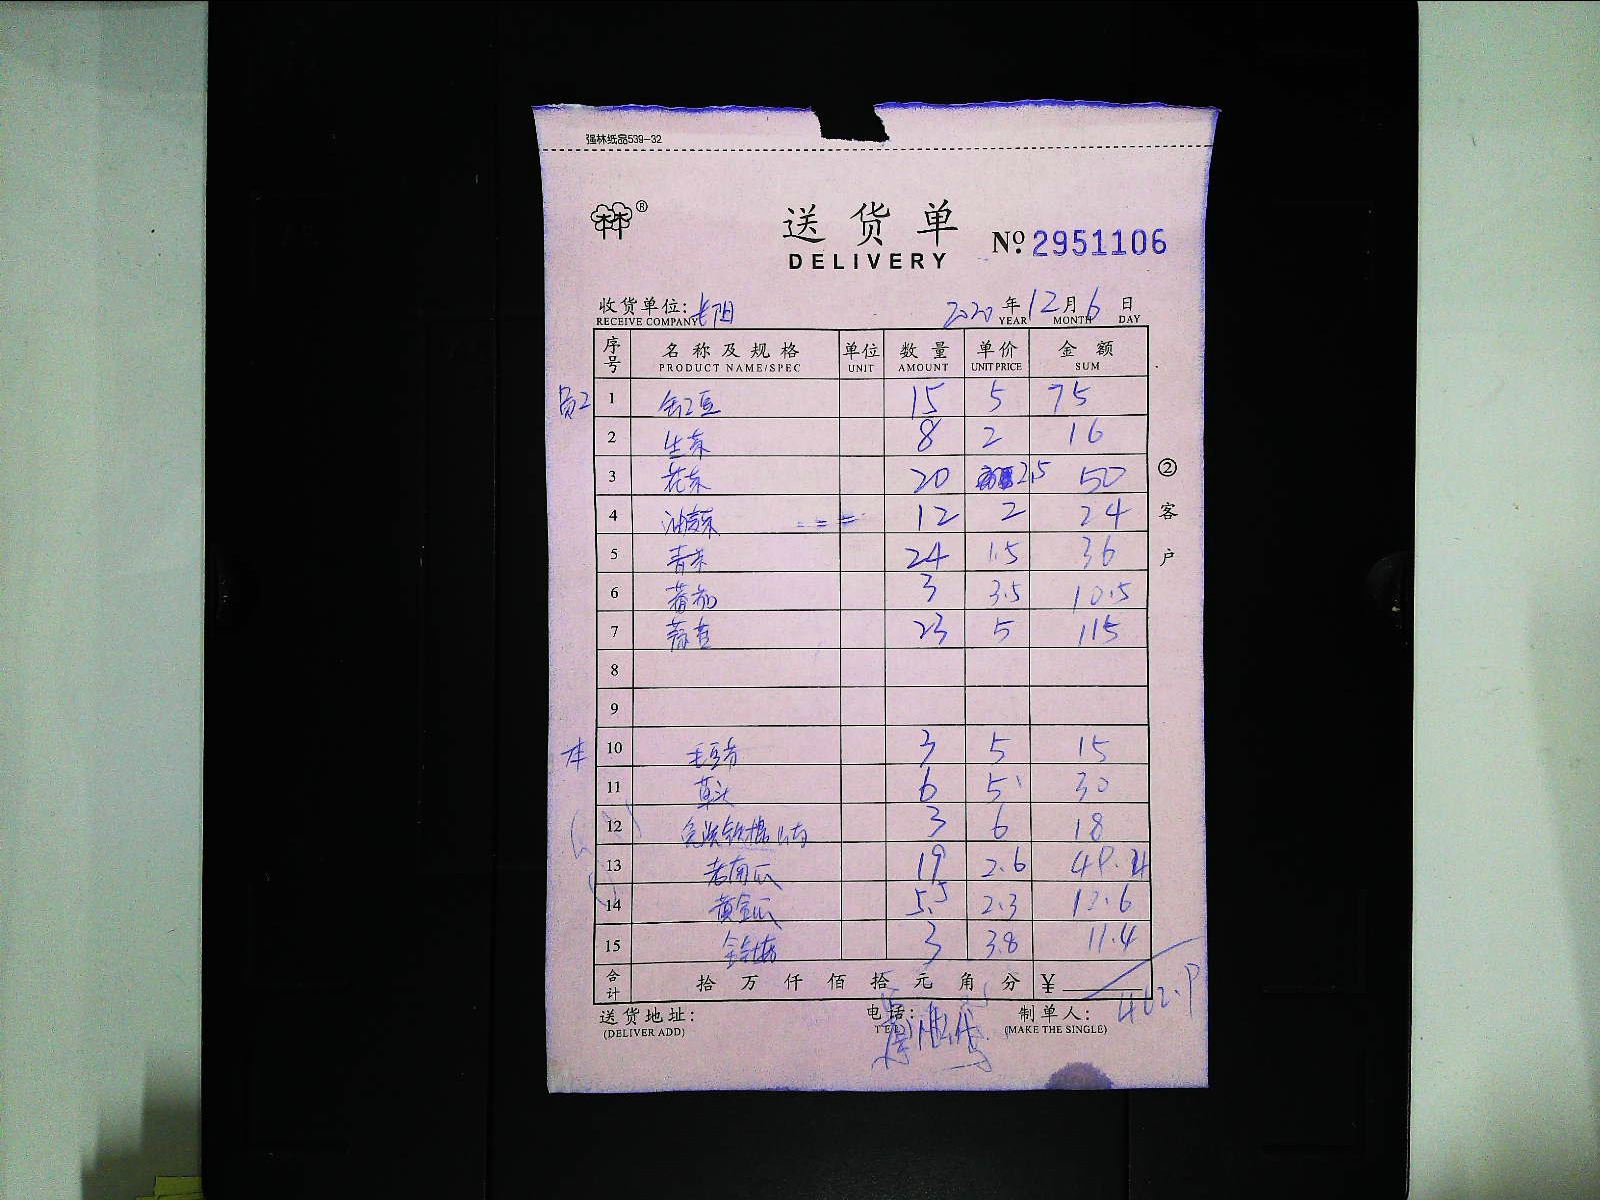 强林纸品539-32
®
送货单
DELIVERY
Nº 2951106
收货单位: 长阳 2020 年 12 月 6 日
RECEIVE COMPANY YEAR MONTH DAY
序号 名称及规格 单位 数量 单价 金额
PRODUCT NAME/SPEC UNIT AMOUNT UNIT PRICE SUM
员工 1 豆 15 5 75
2 生菜 8 2 16
3 花菜 20 2.5 50
4 油麦菜 12 2 24
5 青菜 24 1.5 36
6 番茄 3 3.5 10.5
7 蒜苗 23 5 115
8
9
本 10 毛豆节 3 5 15
11 草头 6 5 30
12 铁棍山药 3 6 18
13 老南瓜 19 2.6 49.4
14 黄金瓜 5.5 2.3 12.6
15 3 3.8 11.4
合计 拾 万 仟 佰 拾 元 角 分 ¥
482.9
送货地址: 电话: 制单人:
(DELIVER ADD) TEL (MAKE THE SINGLE)
② 客户